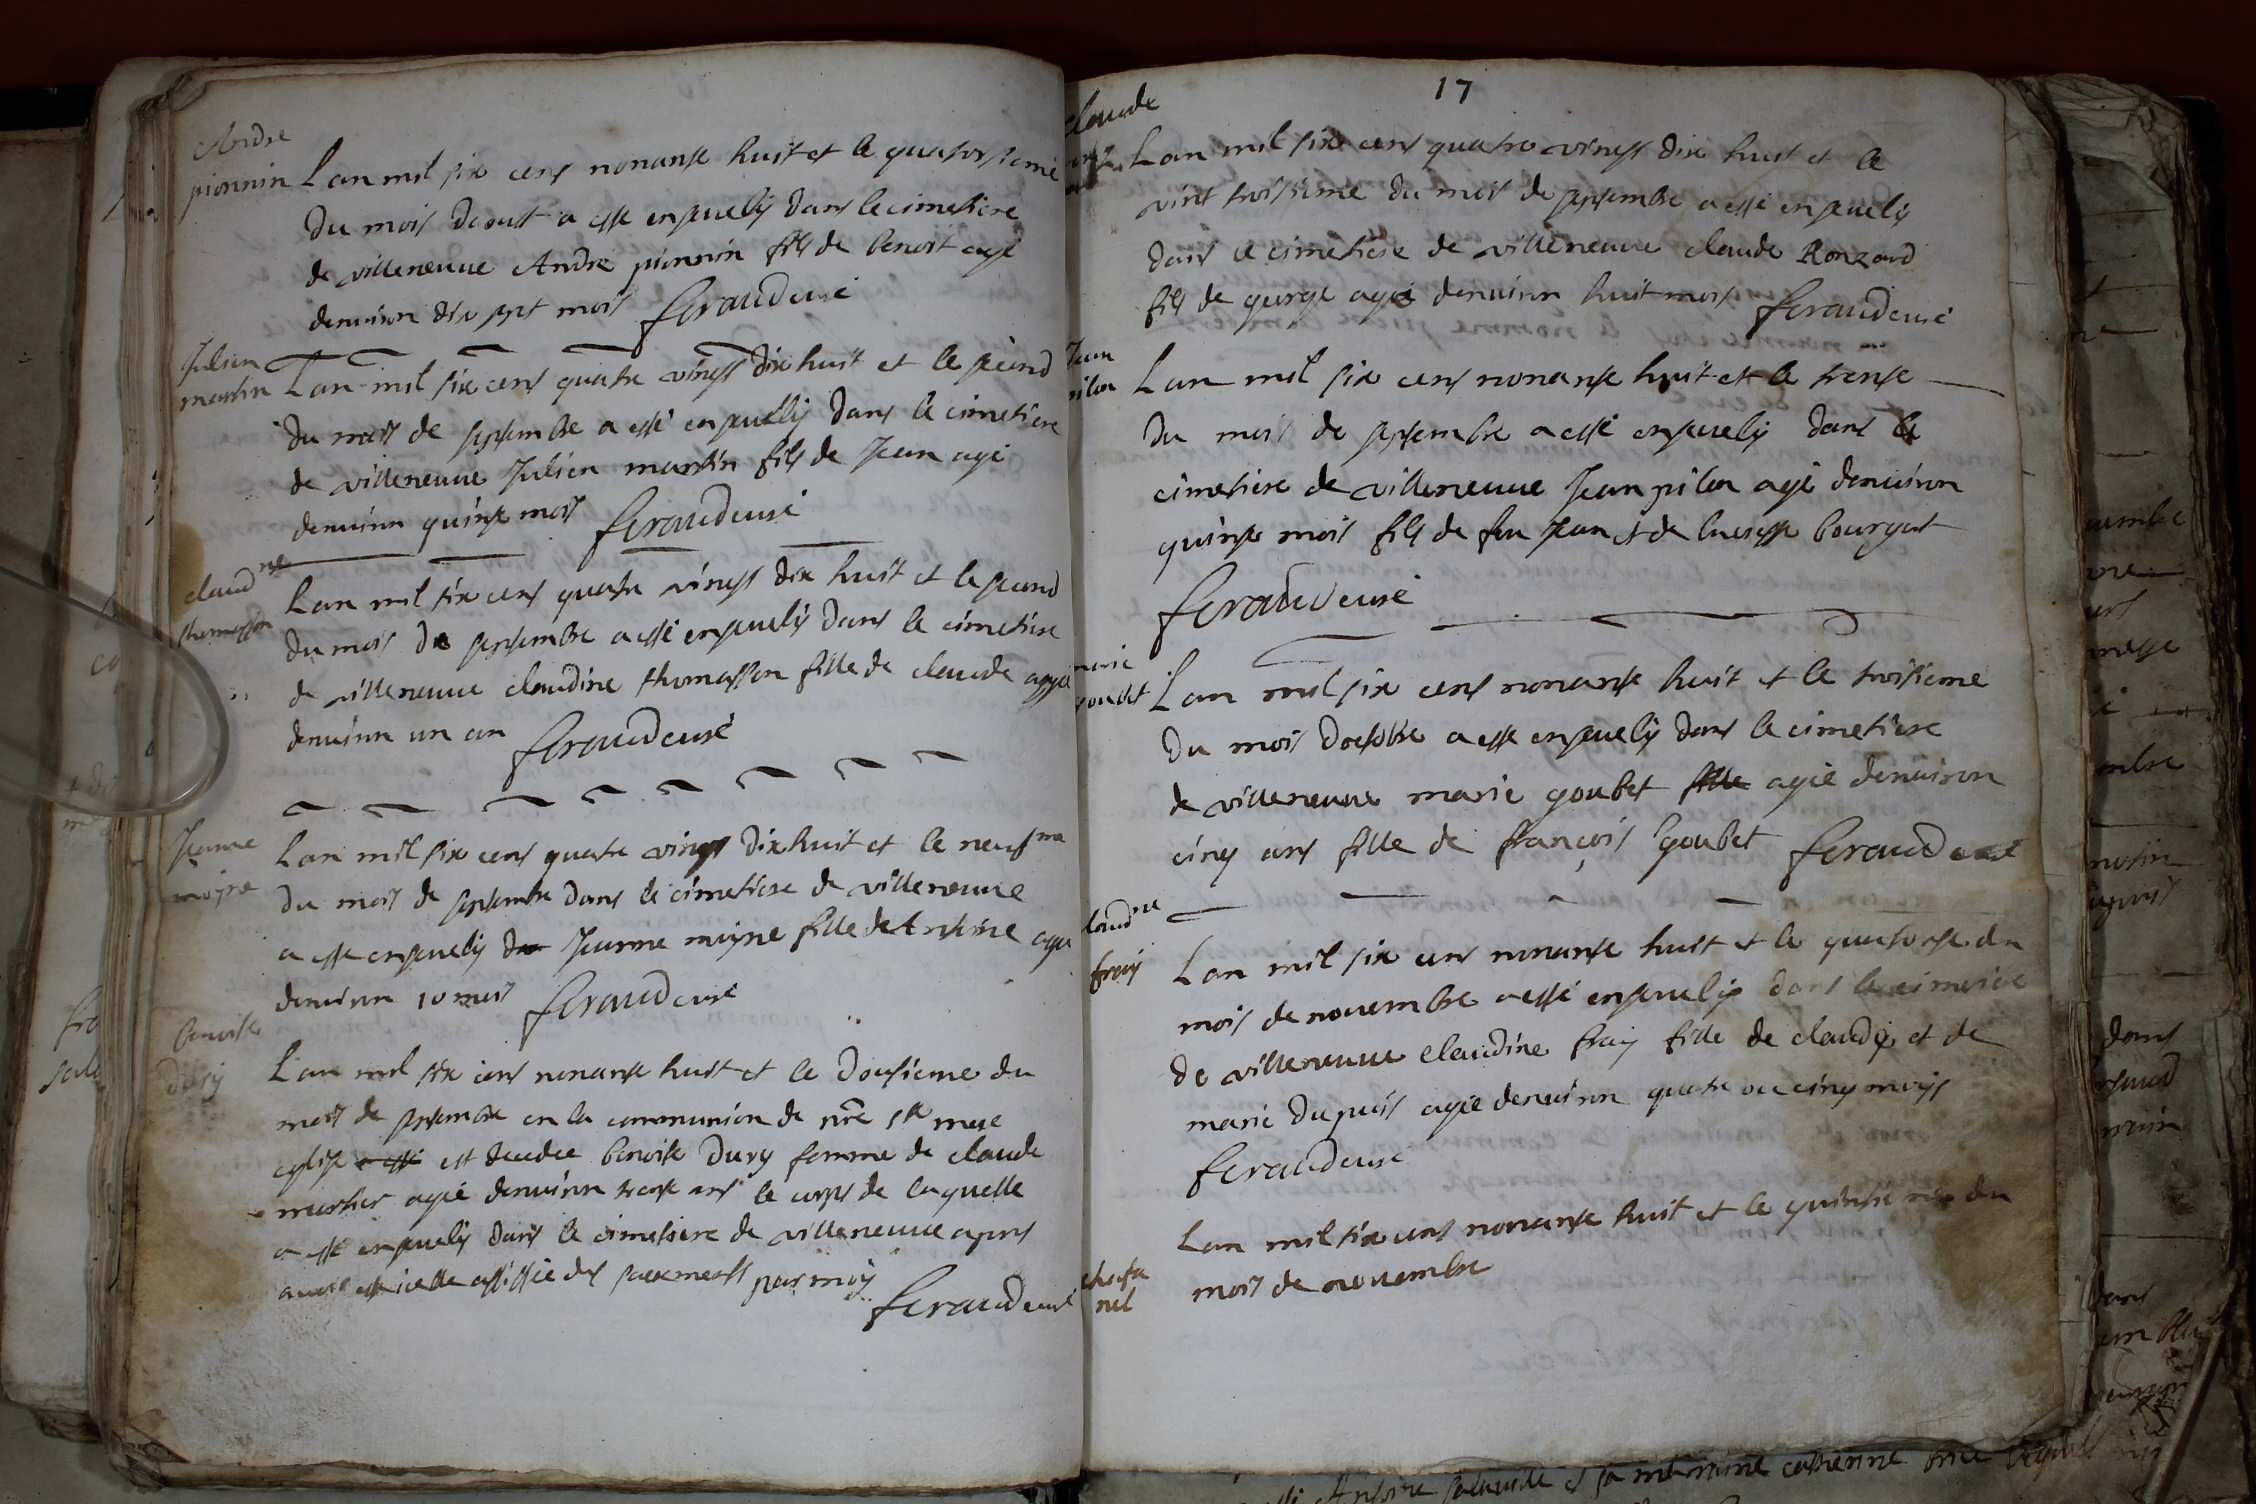 Andre
pionnin
Lan mil six cens nonante huit et le quatorsieme
du mois daoust a esté enseuely dans le cimetiere
de villeneuve Andre pionnin fils de benoit agé
denuiron dix sept mois feraud curé
Julien
martin
Lan mil six cens quatre vingts dix huit et le second
du mois de septembre a esté enseuely dans le cimetiere
de villeneuve Julien martin fils de Jean agé
denuiron quinse mois feraud curé
claudne
thomasson
Lan mil six cens quatre vingts dix huit et le second
du mois de septembre a esté enseuely dans le cimetiere
de villeneuve claudine thomasson fille de claude agée
denuiron un an feraud curé
Jeanne
moyne
Lan mil six cens quatre vingts dix huit et le neufme
du mois de septembre dans le cimetiere de villeneuve
a esté enseuely Jeanne moyne fille de Antoine agee
denuiron 10 mois feraud curé
benoite
Dury
Lan mil six cens nonante huit et le dousieme du
mois de septembre en la communion de nre ste mere
eglise a esté est decedee benoite Dury femme de claude
mortier agée denuiron trente ans le corps de laquelle
a esté enseuely dans le cimetiere de villeneuve apres
auoir esté icelle assistée des sacrements par moy
feraud curé
17
claude
Lan mil six cens quatre vingts dix huit et le
vint troisieme du mois de septembre a esté enseuely
dans le cimetiere de villeneuve claude Ronzard
fils de george agé denuiron huit mois feraud curé
Jean
pilon
Lan mil six cens nonante huit et le trente
du mois de septembre a esté enseuely dans le
cimetiere de villeneuve Jean pilon agé denuiron
quinse mois fils de feu Jean et de bourgat
feraud curé
marie
goubet
Lan mil six cens nonante huit et le troisieme
du mois doctobre a esté enseuely dans le cimetiere
de villeneuve marie goubet fille agée denuiron
cinq ans fille de françois goubet feraud curé
claudne
fray
Lan mil six cens nonante huit et le quatorse du
mois de nouembre a esté enseuely dans le cimetiere
de villeneuve claudine fray fille de claude et de
marie Dupuis agée denuiron quatre ou cinq moys
feraud curé
nel
Lan mil six cens nonante huit et le quinsieme du
mois de nouembre